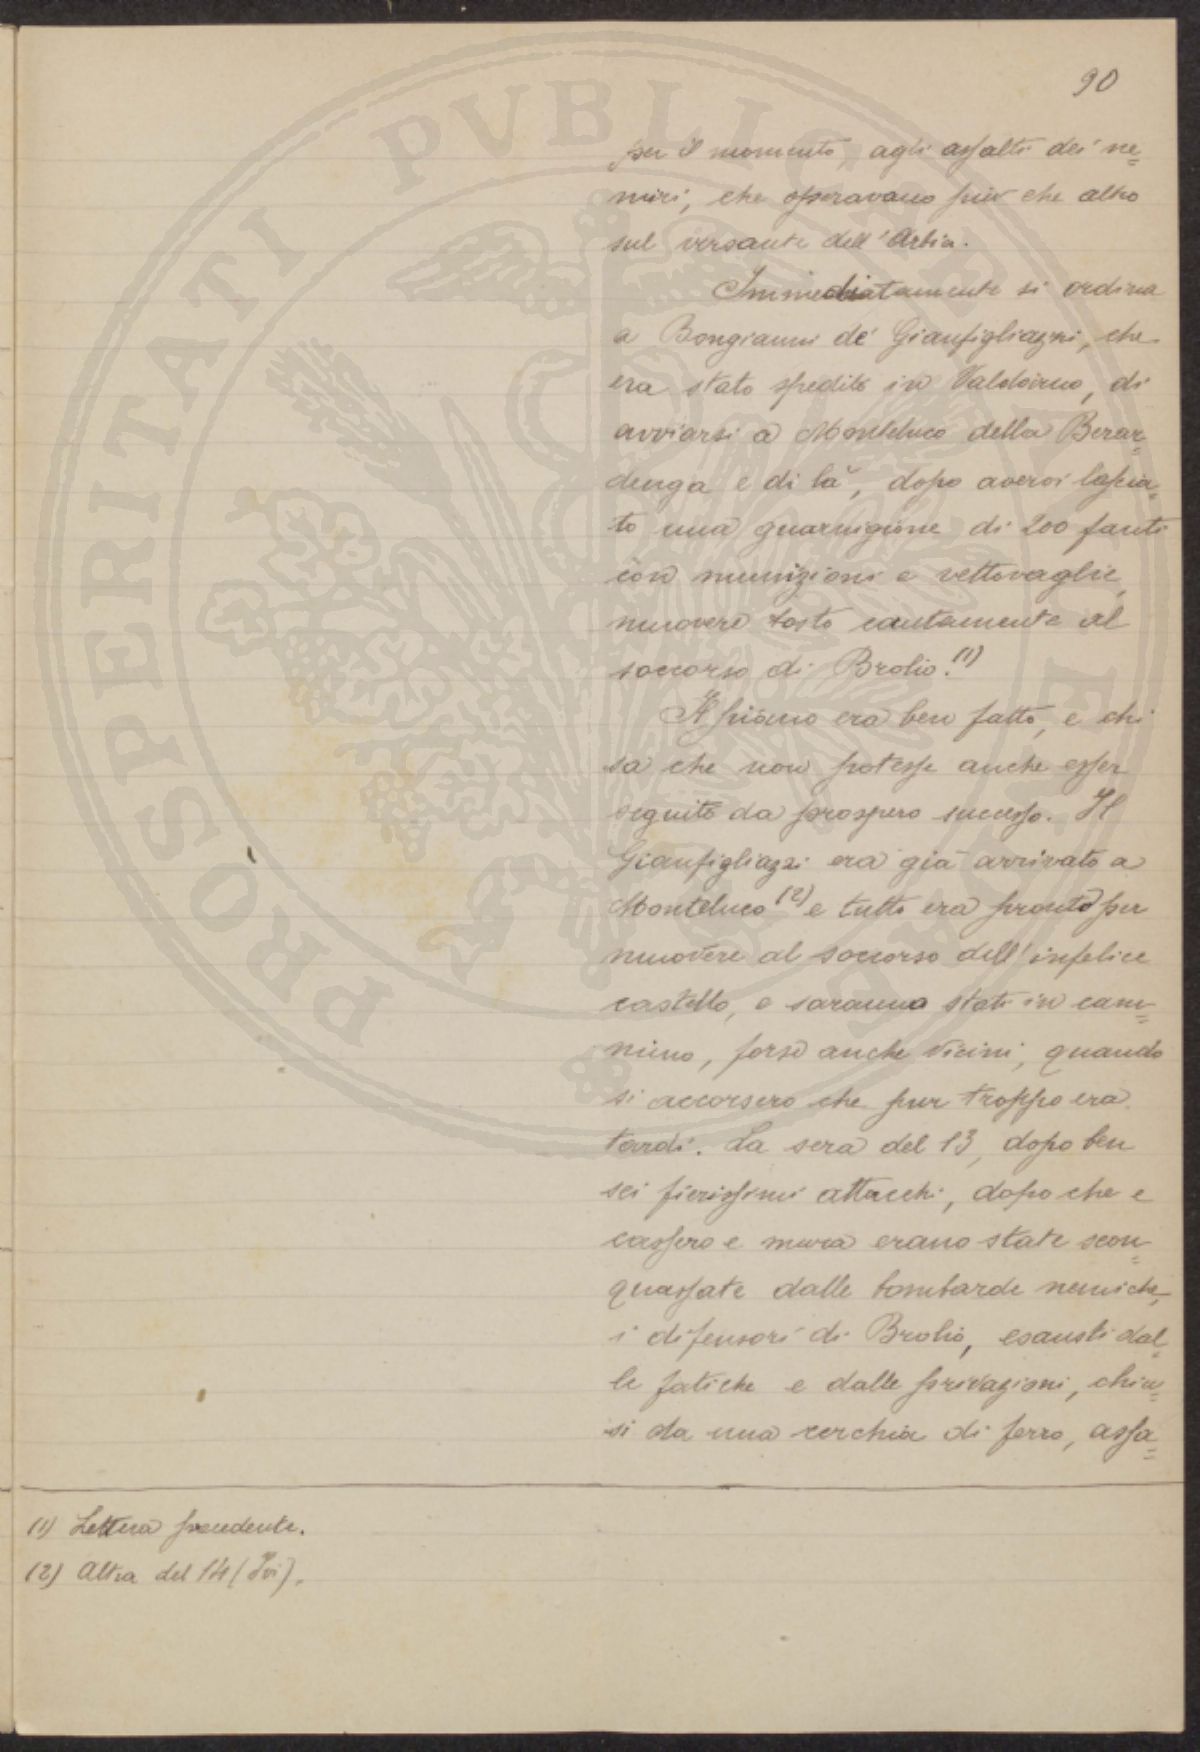 90
per il momento, agli assalti dei ne=
mici, che operavano più che altro
sul versante dell'Arbia.
Immediatamente si ordina
a Bongianni de' Gianfigliazzi, che
era stato spedito in Valdarno, di
avviarsi a Monteluco della Berar=
denga e di là, dopo avervi lascia=
to una guarnigione di 200 fanti
con munizioni e vettovaglie,
muovere tosto cautamente al
soccorso di Brolio.(1)
Il piano era ben fatto, e chi
sa che non potesse anche esser
seguito da prospero successo. Il
Gianfigliazzi era già arrivato a
Monteluco (2) e tutto era pronto per
muovere al soccorso dell'infelice
castello, e saranno stati in cam=
mino, forse anche vicini, quando
si accorsero che pur troppo era
tardi. La sera del 13, dopo ben
sei fierissimi attacchi, dopo che e
cassero e mura erano state scon=
quassate dalle bombarde nemiche,
i difensori di Brolio, esausti dal=
le fatiche e dalle privazioni, chiu=
si da una cerchia di ferro, assa=
(1) Lettera precedente.
(2) Altra del 14 (Ivi).
PROSPERITATI PVBLICAE